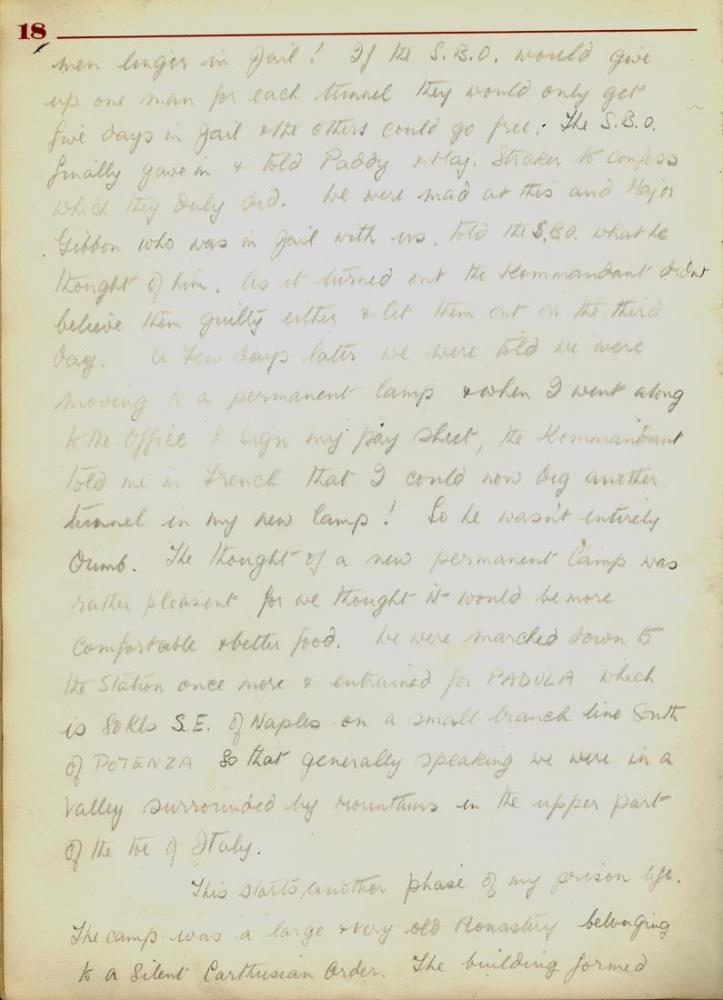 18
men linger in Jail! If the S.B.O. would give
up one man for each tunnel they would only get
five days in Jail & the others could go free. The S.B.O.
finally gave in & told Paddy & Maj. Straker to confess
which they duly did. We were mad at this and Major
Gibbon who was in Jail with us, told the S.B.O. what he
thought of him. As it turned out the Kommandant didnt
believe them guilty either & let them out on the third
day. A few days later we were told we were
moving to a permanent Camp & when I went along
to the Office to sign my pay sheet, the Kommandant
told me in French that I could now dig another
tunnel in my new Camp! So he wasn't entirely
dumb. The thought of a new permanent Camp was
rather pleasent for we thought it would be more
comfortable & better food. We were marched down to
the Station once more & entrained for PADULA which
is 80 Kls S.E. of Naples on a small branch line South
of POTENZA So that generally speaking we were in a
Valley surrounded by mountains in the upper part
of the toe of Italy.
This starts another phase of my prison life.
The camp was a large & very old Monastery belonging
to a Silent Carthusian Order. The building formed